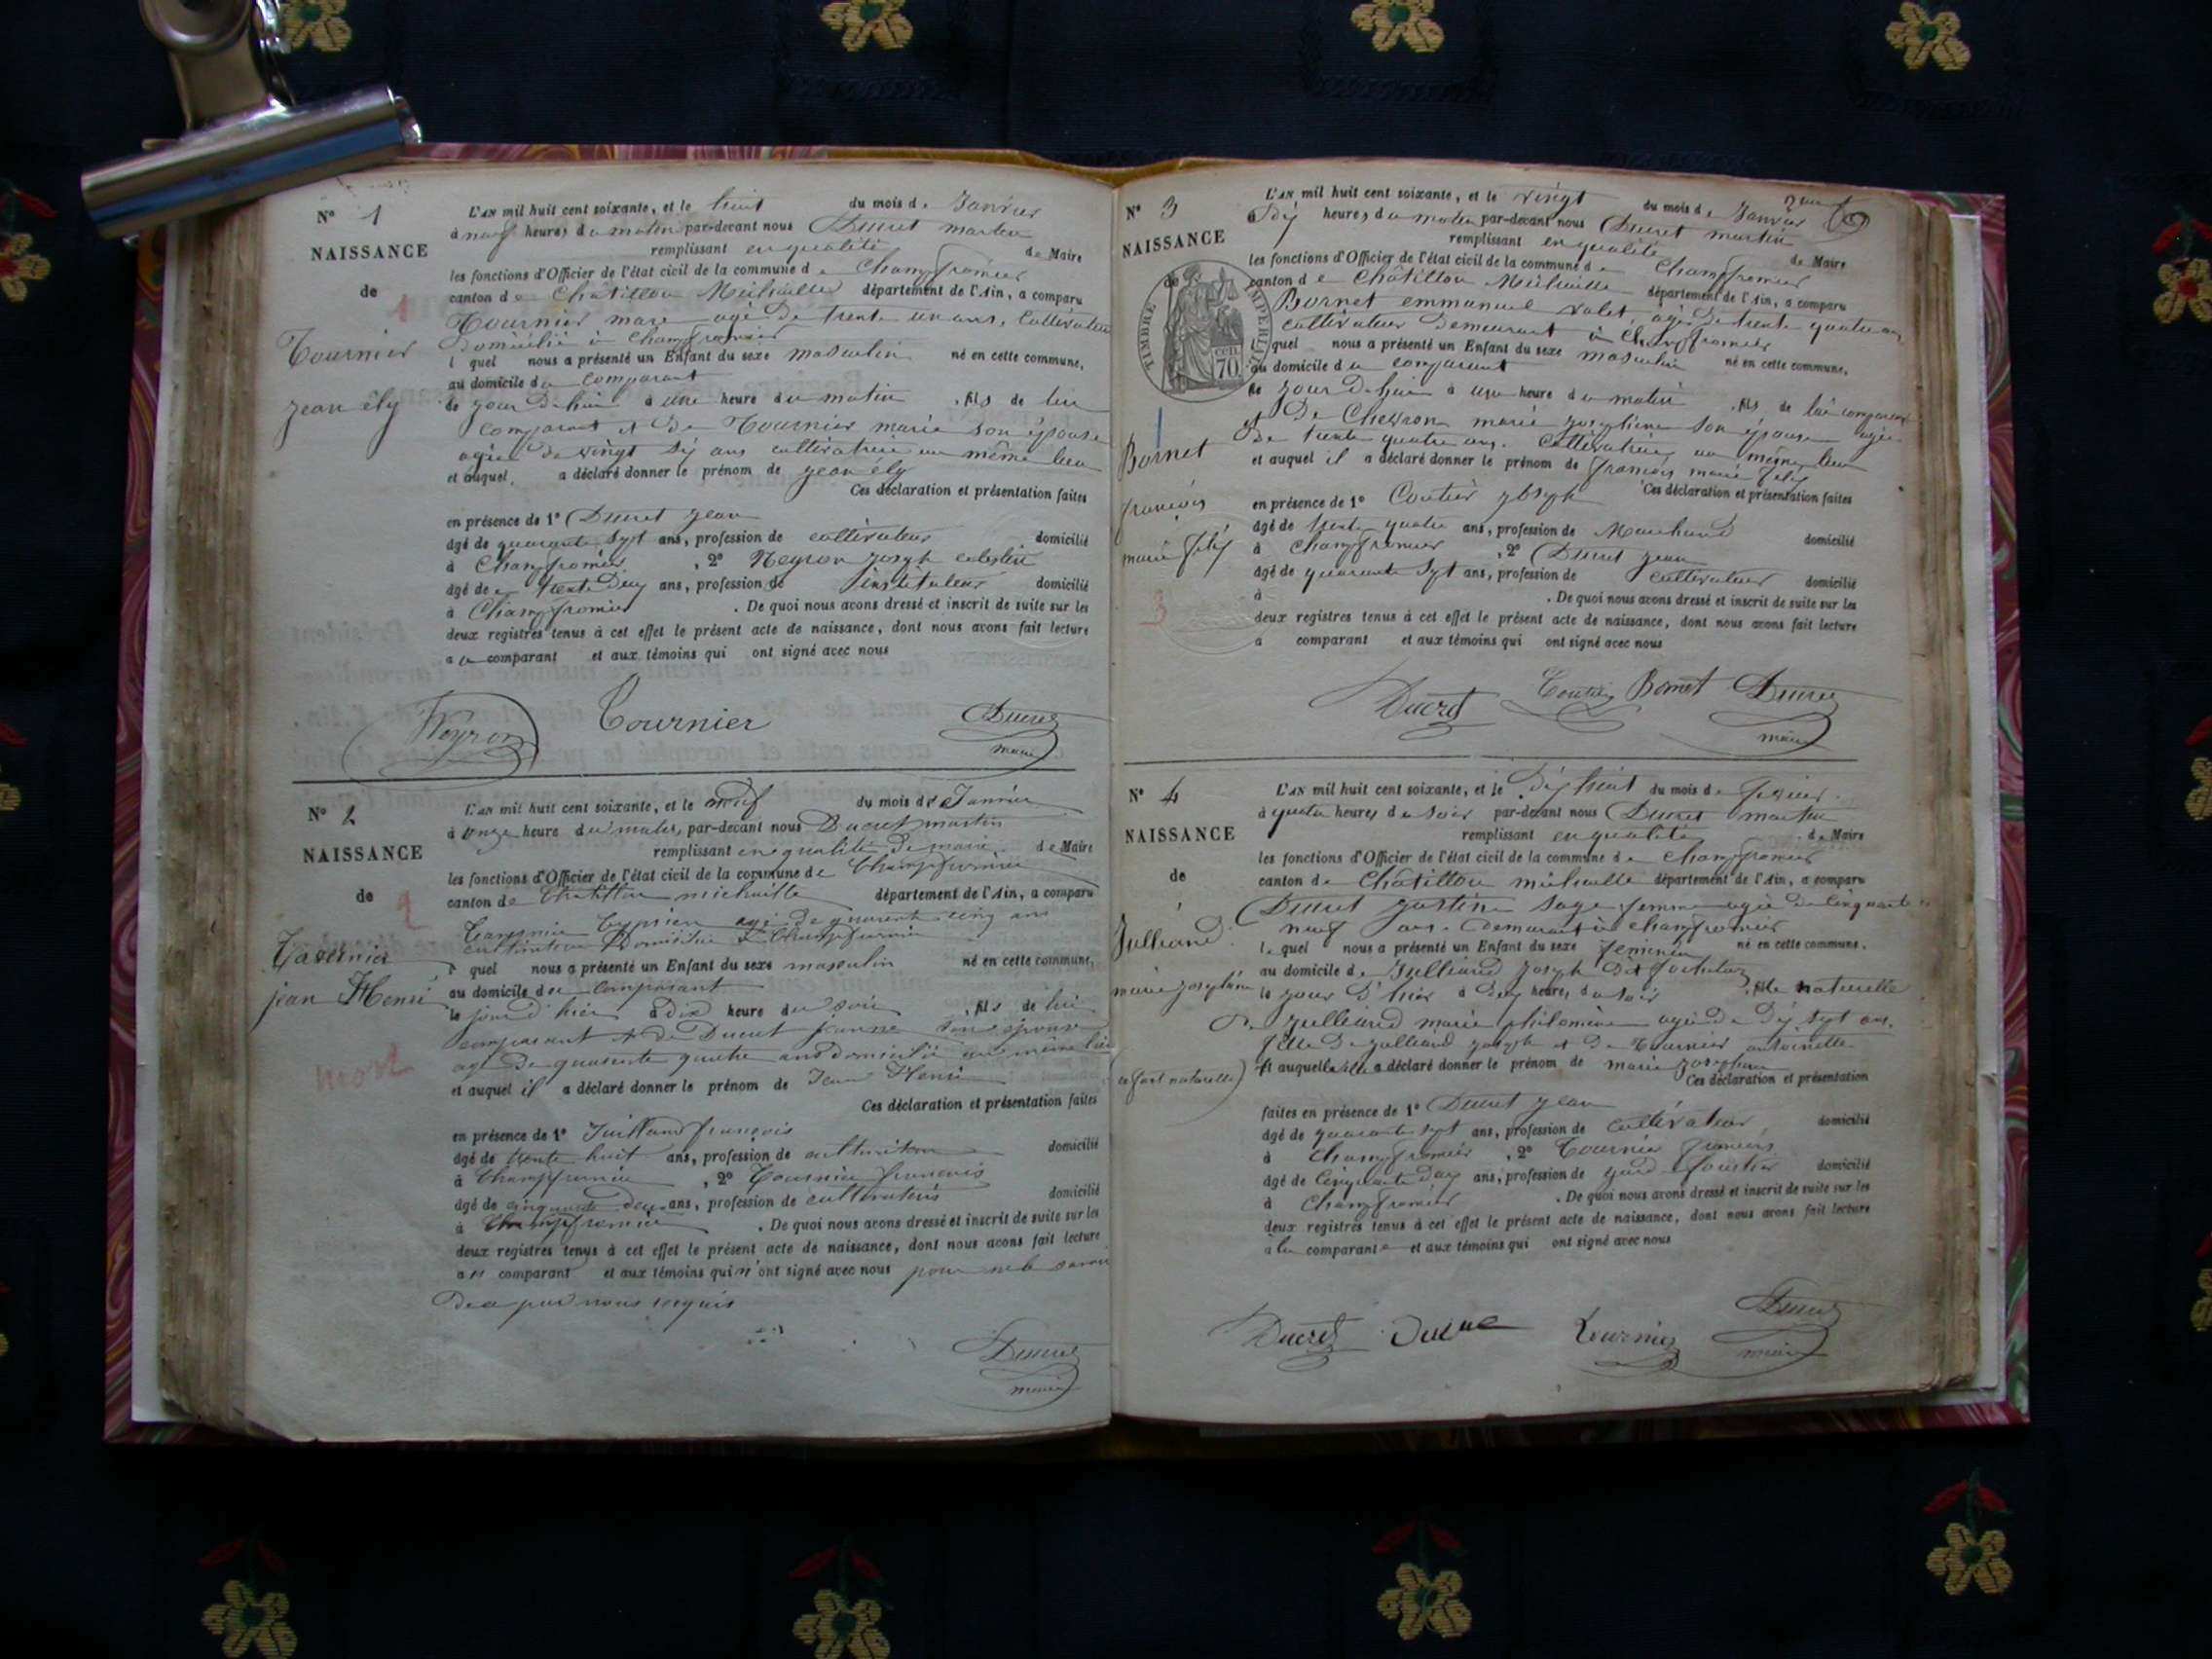 N° 1
NAISSANCE
de
1
Tournier
jean ély
L'AN mil huit cent soixante, et le huit du mois de Janvier
à neuf heures du matin par-devant nous Ducret martin
remplissant en qualité de Maire
les fonctions d'Officier de l'état civil de la commune de Champfromier
canton de Châtillon Michaille département de l'Ain, a comparu
Tournier marc agé de trente un ans, Cultivateur
Domicilié à Champfromier
l quel nous a présenté un Enfant du sexe masculin né en cette commune,
au domicile du comparant
le jour d'hui à une heure du matin , fils de lui
comparant et de Tournier marie son épouse
agée de vingt six ans cultivatrice au même lieu
et auquel, a déclaré donner le prénom de jean ély
Ces déclaration et présentation faites
en présence de 1° Ducret jean
âgé de quarante sept ans, profession de cultivateur , domicilié
à Champfromier , 2° Neyron joseph celestin
âgé de trente deux ans, profession de instituteur domicilié
à Champfromier . De quoi nous avons dressé et inscrit de suite sur les
deux registres tenus à cet effet le présent acte de naissance, dont nous avons fait lecture
au comparant et aux témoins qui ont signé avec nous
Neyron Tournier Ducret
maire
N° 2
NAISSANCE
de
2
Tavernier
jean Henri
mort
L'AN mil huit cent soixante, et le neuf du mois de Janvier
à onze heure du matin, par-devant nous Ducret martin
remplissant en qualité de maire de Maire
les fonctions d'Officier de l'état civil de la commune de Champfromier
canton de Chatillon michaille département de l'Ain, a comparu
Cyprien agé de quarante cinq ans
cultivateur Domicilié à Champfromier
quel nous a présenté un Enfant du sexe masculin né en cette commune,
au domicile du comparant
le jour d'hier à dix heure du soir , fils de lui
comparant et de Ducret jeanne son épouse
agé de quarante quatre ans domicilié au même lieu
et auquel il a déclaré donner le prénom de Jean Henri
Ces déclaration et présentation faites
en présence de 1° Juilland françois
âgé de trente huit ans, profession de cultivateur domicilié
à Champfromier , 2° Tournier françois
âgé de cinquante deux ans, profession de cultivateurs domicilié
à Champfromier . De quoi nous avons dressé et inscrit de suite sur les
deux registres tenus à cet effet le présent acte de naissance, dont nous avons fait lecture
au comparant et aux témoins qui n'ont signé avec nous pour ne le savoir
De ce par nous requis
Ducret
maire
N° 3
NAISSANCE
de
TIMBRE IMPERIAL
cen. 70
Bornet
françois
marie félix
3
L'AN mil huit cent soixante, et le vingt du mois de Janvier
à Dix heures du matin par-devant nous Ducret martin
remplissant en qualité de Maire
les fonctions d'Officier de l'état civil de la commune de Champfromier
canton de Châtillon Michaille département de l'Ain, a comparu
Bornet emmanuel valet, agé de trente quatre ans
cultivateur demeurant à Champfromier
quel nous a présenté un Enfant du sexe masculin né en cette commune,
au domicile du comparant
le jour d'hui à une heure du matin , fils de lui comparant
et De Chevron marie josephine son épouse agée
De trente quatre ans. Cultivatrice, au même lieu
et auquel il a déclaré donner le prénom de françois marie félix
Ces déclaration et présentation faites
en présence de 1° Coutier joseph
âgé de trente quatre ans, profession de Marchand domicilié
à Champfromier , 2° Ducret jean
âgé de quarante sept ans, profession de cultivateur domicilié
à . De quoi nous avons dressé et inscrit de suite sur les
deux registres tenus à cet effet le présent acte de naissance, dont nous avons fait lecture
a comparant et aux témoins qui ont signé avec nous
Ducret Coutier Bornet Ducret
maire
N° 4
NAISSANCE
de
Julliand
marie josephine
(enfant naturelle)
L'AN mil huit cent soixante, et le Dix huit du mois de fevrier
à quatre heures du soir par-devant nous Ducret martin
remplissant en qualité de Maire
les fonctions d'Officier de l'état civil de la commune de Champfromier
canton de Châtillon michaille département de l'Ain, a comparu
Ducret justine sage femme agée de cinquante
neuf ans. Demeurant à Champfromier
la quel nous a présenté un Enfant du sexe féminin né en cette commune,
au domicile de Julliand joseph dit
le jour d'hier à deux heures du soir , fille naturelle
De julliand marie philomène agée de dix sept ans,
fille de julliand joseph et de Tournier antoinette
Et auquelle elle a déclaré donner le prénom de marie josephine
Ces déclaration et présentation
faites en présence de 1° Ducret jean
âgé de quarante sept ans, profession de cultivateur domicilié
à Champfromier , 2° Tournier françois
âgé de cinquante deux ans, profession de garde forestier domicilié
à Champfromier . De quoi nous avons dressé et inscrit de suite sur les
deux registres tenus à cet effet le présent acte de naissance, dont nous avons fait lecture
à la comparante et aux témoins qui ont signé avec nous
Ducret Tournier Ducret
maire